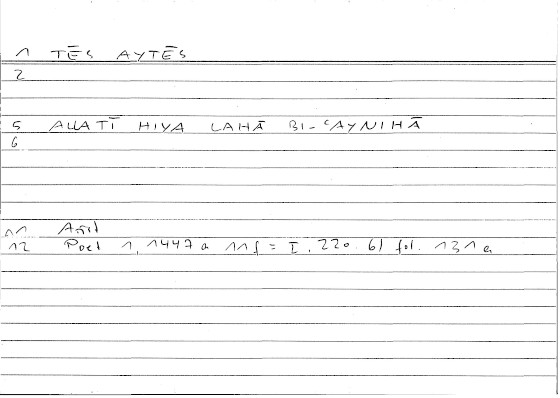 1 TĒS AYTĒS
2
5 ALLATĪ HIYA LAHĀ BI-ʿAYNIHĀ
6
11 Arist
12 Poet 1, 1447 a 11f = I, 220.6 / fol. 131a